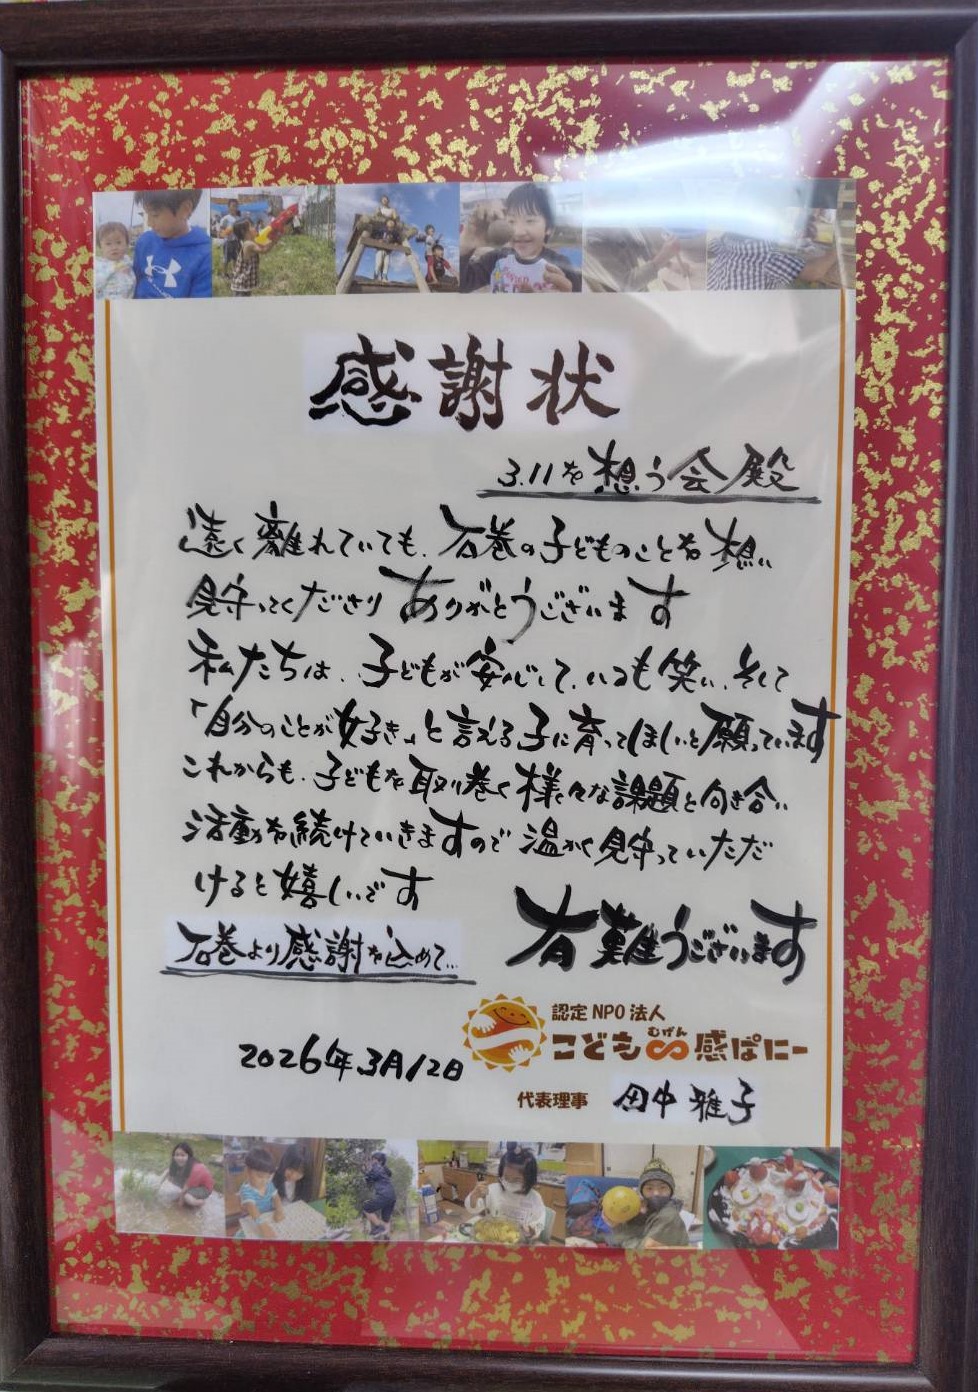 感謝状
3.11を想う会殿
遠く離れていても、石巻の子どものことを想い
見守ってくださりありがとうございます
私たちは、子どもが安心して、いつも笑い、そして
「自分のことが好き」と言える子に育ってほしいと願っています
これからも、子どもを取り巻く様々な課題と向き合い
活動を続けていきますので温かく見守っていただ
けると嬉しいです
有難うございます
石巻より感謝を込めて…
認定NPO法人
むげん
こども∞感ぱにー
2026年3月12日
代表理事 田中雅子